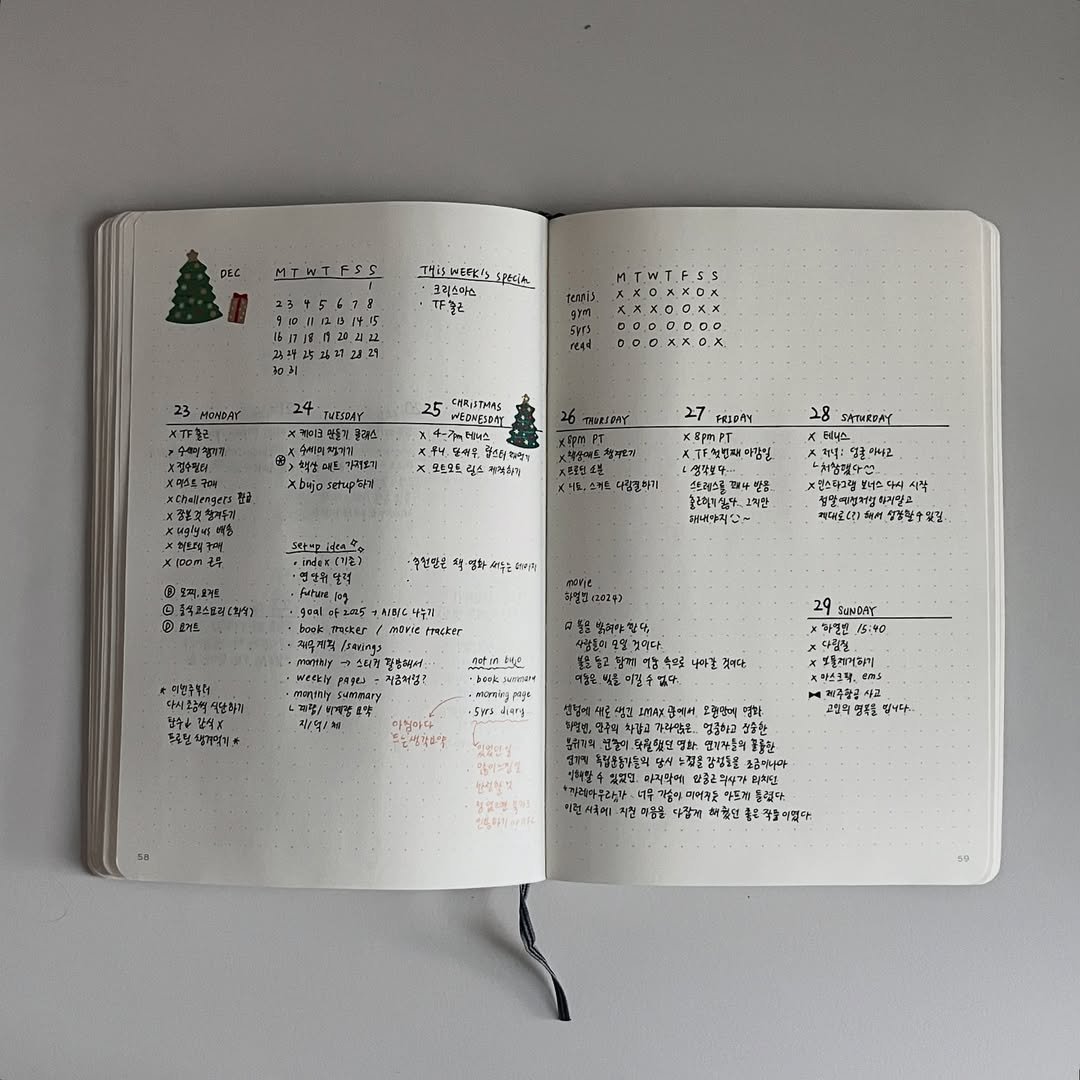 DEC
M T W T F S S
1
2 3 4 5 6 7 8
9 10 11 12 13 14 15
16 17 18 19 20 21 22
23 24 25 26 27 28 29
30 31
THIS WEEK is special
· 크리스마스
· TF 출근
23 MONDAY
x TF 출근
> 수세미 챙기기
x 정수필터
x 미스트 구매
x challengers 환급
x 장본것 챙겨두기
x uglyus 배송
x 히트텍 구매
x 100m 근무
Ⓑ 모찌, 요거트
Ⓛ 중식코스요리 (회식)
Ⓓ 요거트
* 이번주부터
다시 조금씩 식단하기
탄수↓ 간식 x
프로틴 챙겨먹기 *
24 TUESDAY
x 케이크 만들기 클래스
x 수세미 챙기기
> 책상 매트 가져오기
x bujo setup 하기
setup idea
· index (기존)
· 연단위 달력
· future log
· goal of 2025 → A/B/C 나누기
· book tracker / movie tracker
· 재무계획 / savings
· monthly → 스티커 활용해서...
· weekly pages - 지금처럼?
· monthly summary
ㄴ 계량 / 비계량 요약
지 / 덕 / 체
25 CHRISTMAS WEDNESDAY
x 4-7pm 테니스
x 우니, 단새우, 랍스터
x 모트모트 림스 제작하기
· 추천받은 책·영화 써두는 페이지
not in bujo
· book summary
· morning page
· 5yrs diary
아침마다
드는 생각 요약
있었던 일
많이 느낀 점
반성할 것
M T W T F S S
tennis x x o x x o x
gym x x x o o x x
5yrs o o o o o o o
read o o o x x o x
26 THURSDAY
x 8pm PT
x 책상매트 챙겨오기
x 프로틴 소분
x 니트, 스커트 다림질하기
27 FRIDAY
x 8pm PT
x TF 첫번째 마감일
ㄴ 생각보다...
스트레스를 꽤나 받음.
출근하기 싫다.. 그치만
해내야지 ~
28 SATURDAY
x 테니스
x 저녁: 얼굴 아나고
ㄴ 처참했다
x 인스타그램 보너스 다시 시작
첨말 예전처럼 하지말고
제대로(?) 해서 성장할 수 있길..
movie
하얼빈 (2024)
불을 밝혀야 한다,
사람들이 모일 것이다.
불을 들고 함께 어둠 속으로 나아갈 것이다.
어둠은 빛을 이길 수 없다.
센텀에 새로 생긴 IMAX 관에서 오랜만에 영화.
하얼빈, 연주의 차갑고 가라앉은.. 엄중하고 진중한
분위기의 연출이 탁월했던 영화. 연기자들의 훌륭한
연기에 독립운동가들의 당시 느꼈을 감정들을 조금이나마
이해할 수 있었던. 마지막에 안중근 의사가 외치던
"까레아우라"가.. 너무 가슴이 미어지듯 아프게 들렸다.
이런 시국에 지친 마음을 다잡게 해줬던 좋은 작품이었다.
29 SUNDAY
x 하얼빈 15:40
x 다림질
x 보풀제거하기
x 마스크팩, ems
제주항공 사고
고인의 명복을 빕니다..
58
59